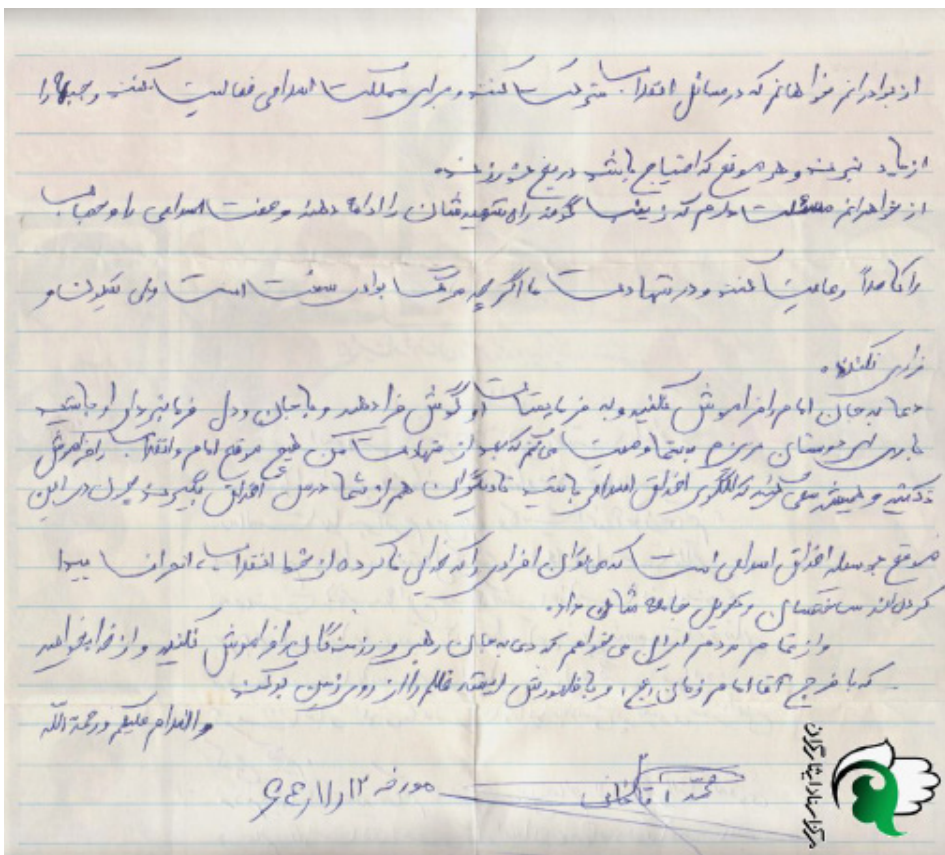 از برادرانم خواهانم که در مسائل انقلاب حرکت کنند و برای مملکت اسلامی فعالیت کنند و جبهه را
از یاد نبرند و هر موقع که احتیاج باشد دریغ نورزند.
از خواهرانم مسئلت دارم که زینب گونه راه شهیدشان را ادامه دهند و عفت اسلامی را و حجاب
را کاملاً رعایت کنند و در شهادت ما اگر چه مرگ برادر سخت است ولی شیون و
زاری نکنند.
دعا به جان امام را فراموش نکنید و به فرمایشات او گوش فرا دهید و با جان و دل فرمانبردار او باشید
دوستان عزیزم به شما وصیت می‌کنم که بعد از شهادت من هیچ موقع امام و انقلاب را فراموش
نکنید و همیشه سعی کنید که الگوی اخلاق اسلامی باشید تا دیگران هم از شما درس اخلاق بگیرند چون در این
موقع بوسیله اخلاق اسلامی است که می‌توان افرادی را که خدای ناکرده از خط انقلاب، انحراف پیدا
کرده‌اند ساختشان و تحویل جامعه شان داد.
و از تمام مردم ایران می‌خواهم که دعا به جان رهبر و رزمندگان را فراموش نکنید و از خدا بخواهید
که با فرج آقا امام زمان (عج) و با ظهورش ریشه ظلم را از روی زمین بر کند
والسلام علیکم و رحمة الله
محمد آقاخانی
مورخه ۱۲/۱۱/۶۴
مرکز اسناد ایثارگران